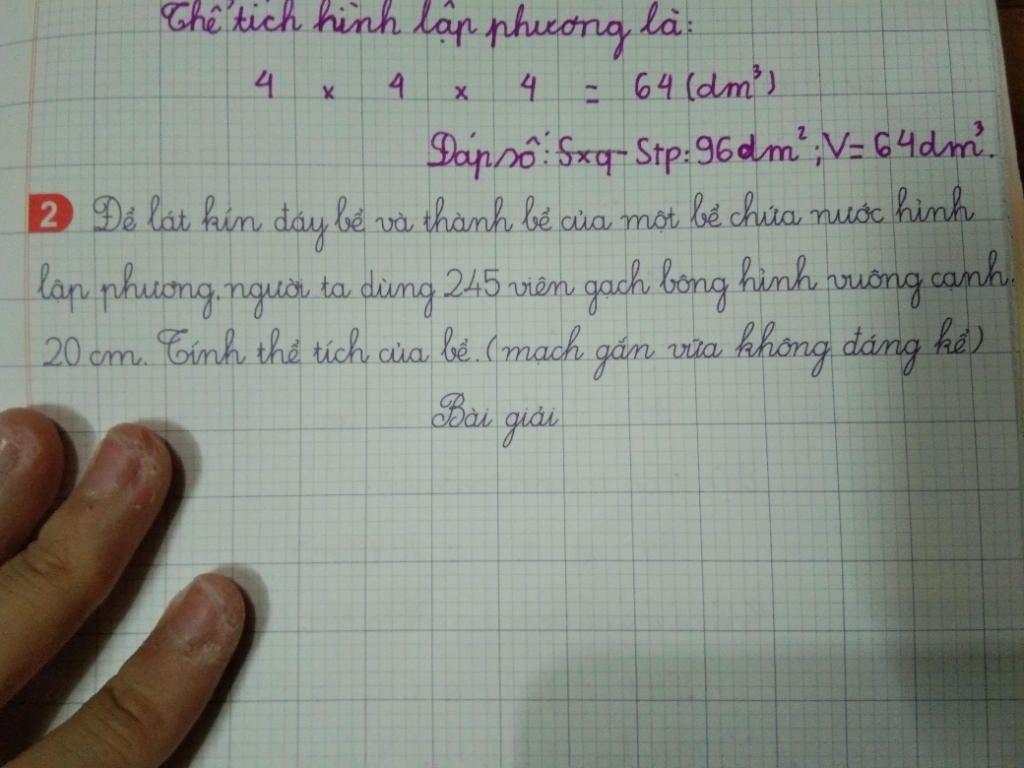 Thể tích hình lập phương là:
4 x 4 x 4 = 64 (dm³)
Đáp số: Sxq - Stp: 96dm²; V= 64dm³.
2 Để lát kín đáy bể và thành bể của một bể chứa nước hình
lập phương, người ta dùng 245 viên gạch bông hình vuông cạnh
20 cm. Tính thể tích của bể. (mạch gắn vữa không đáng kể)
Bài giải